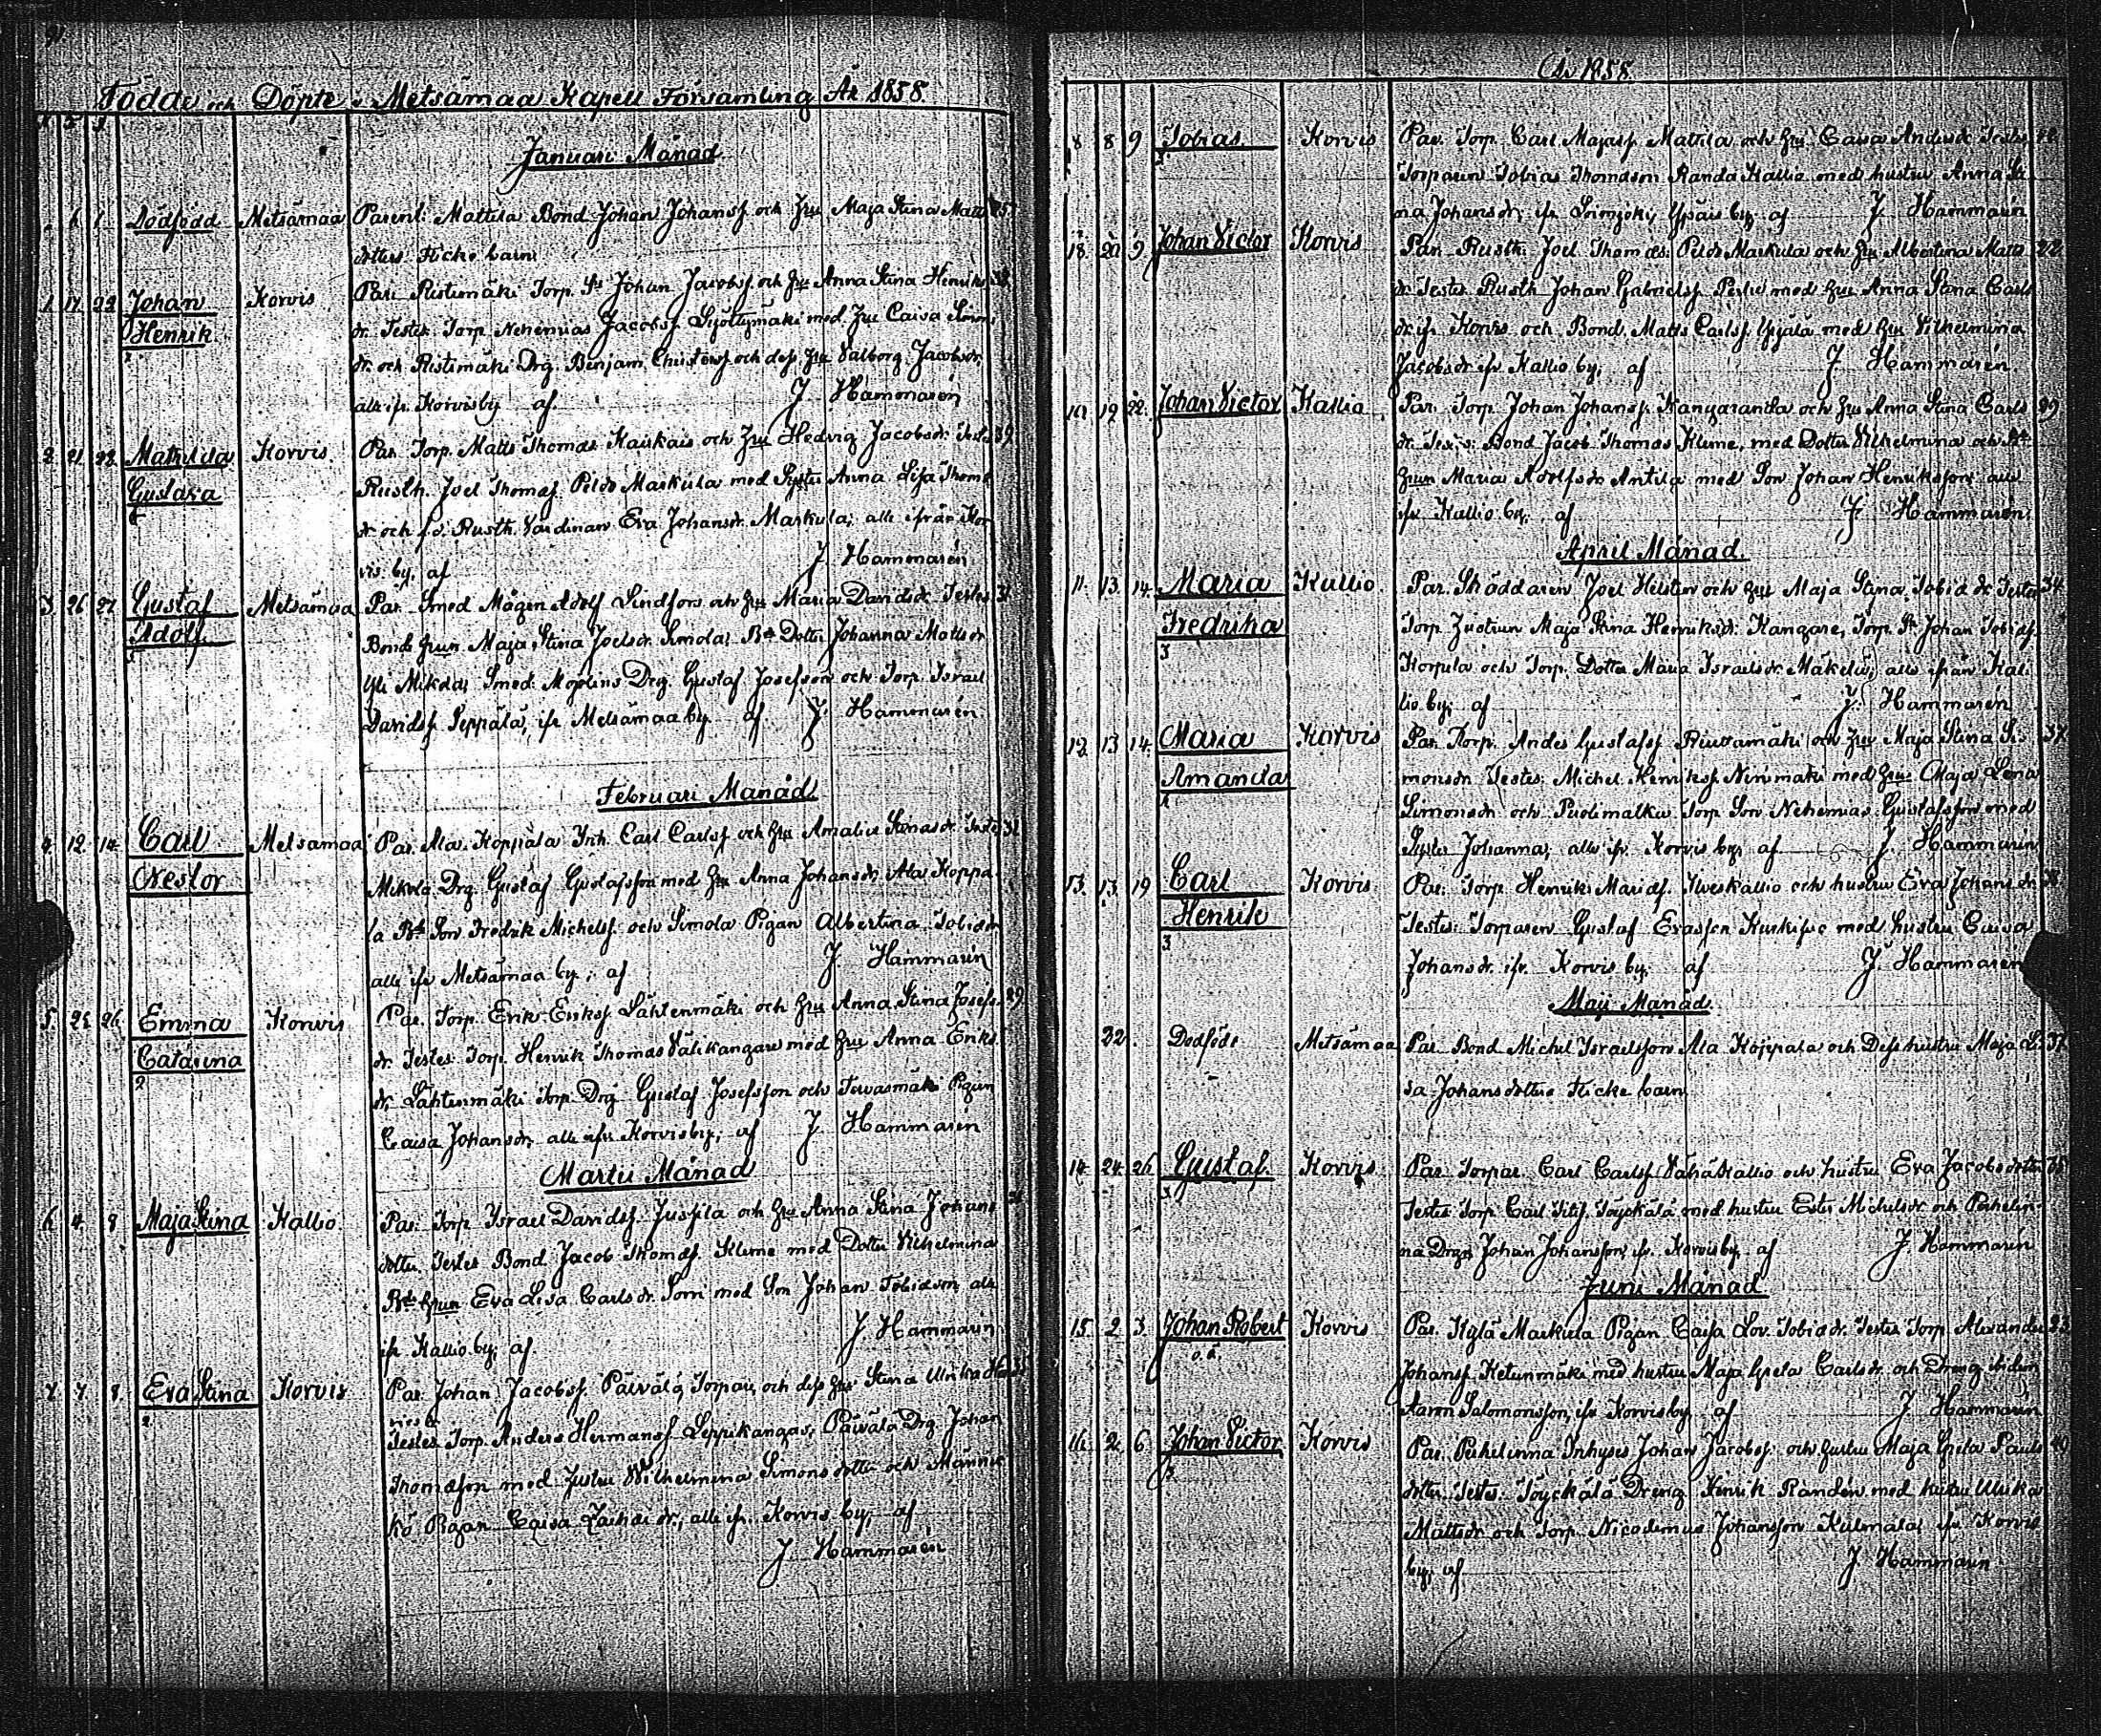 Födde och Döpte i Metsämaa Kapell Församling År 1858.
Januari Månad
6 1 Dödfödd Metsämaa Parent: Mattila Bond Johan Johanss. och Hru Maja Stina Matts 25
dotters flicke barn
1 17. 22 Johan Henrik Korvis Par: Ristimäki Torp. Sn Johan Jacobss. och Hru Anna Stina Henriks
dr. Testes Torp. Nehemias Jacobss. med Hru Caisa Simons
dr. och Ristimäki Drg. Benjam. och dess Hru Valborg Jacobsdr.
alla ifr. Korvis by af. J Hammarén
2. 21. 22. Mathilda Gustava Korvis Par. Torp. Matts Thomas Kaukais och Hru Hedvig Jacobsdr. Testes 39.
Rusth. Joel Thomas. Markula med Syster Anna Lisa Thoms
dr och f.d. Rusth. Värdinnan Eva Johansdr. Markula; alle ifrån Kor
vis by, af J. Hammarén
3. 26 27. Gustaf Adolf Metsämaa Par. Smed Mågen Adolf Lindfors och Hru Maria Davidsdr. Testes 31
Bonde Hrun Maja Stina Joelsdr. Simola, Bde Dotter Johanna Mattsdr
Yli Mikola, Smed Drg. Gustaf Josefsson och Torp. Israel
Davidss. Seppälä, ifr Metsämaa by af J. Hammarén.
Februari Månad
4 12. 14. Carl Nestor Metsämaa Par. Ala Koppala Inh. Carl Carlss. och Hru Amalia Testes 32
Mikola Drg. Gustaf Gustafsson med Hru Anna Johansdr, Ala Koppa
la Bde Son Fredrik Michelss. och Simola Pigan Albertina Tobiasdr,
alle ifr Metsämaa by; af J Hammarén
5. 25 26. Emma Catarina Korvis Par. Torp. Erik Erikss. Lähtenmäki och Hru Anna Stina Josefs 29
dr. Testes Torp. Henrik Thomas Välikangare med Hru Anna Eriks
dr, Lähtenmäki Torp. Drg Gustaf Josefsson och Tervasmäki Pigan
Caisa Johansdr, alle ifr Korvis by, af J Hammarén
Martii Månad
6. 4. 9 Maja Stina Kallio. Par. Torp. Israel Davidss. Jussila och Hru Anna Stina Johans
dotter. Testes Bond Jacob Thomass. Kleme med Dotter Vilhelmina
Bde Hrun Eva Lisa Carlsdr. Sorri med Son Johan Tobiasson, alle
ifr Kallio by; af. J Hammarén
7. 7. 8. Eva Stina Korvis Par. Johan Jacobss. Päivälä, Torpare, och dess Hru Stina Ulrika
Testes Torp. Anders Hermanss. Leppikangas, Päivälä Drg. Johan
Thomasson med Hustru Wilhelmina Simons dotter och Männis
kö Pigan Caisa Zachar dr., alle ifr. Korvis by; af
J Hammarén
År 1858.
8 8 9 Tobias Korvis Par. Torp. Carl Mattila och Hru Caisa Andersdr. Testes
Torparen Tobias Thomasson Randa Kallio med hustru Anna Sti
na Johansdr, ifr Loimijoki Ypäis by, af J. Hammarén
Johan Victor Korvis Par. Rusth. Joel Thomass. Markula och Hru Albertina Matts 22
dr Testes Rusth. Johan Gabrielss. med Hru Anna Stina Carls
dr. ifr Korvis och Bond. Matts Carlss. med Hru Vilhelmina
Jacobsdr ifr Kallio by; af J Hammarén.
10. 19 22. Johan Victor Kallio Par. Torp. Johan Johanss. Kangaranta och Hru Anna Stina Carls
dr. Testes: Bond Jacob Thomas Kleme, med Dotter Vilhelmina och Bde
Hrun Maria Adolfsdr Antila med Son Johan Henriksson; alle
ifr Kallio by, af J Hammarén
April Månad.
11. 13. 14. Maria Fredrika Kallio. Par. Skräddaren Joel Helsten och Hru Maja Stina Tobias dr. Testes 34
Torp. Hustrun Maja Stina Henriksdr: Kangare, Torp. Sn Johan Tobiass.
Korpela och Torp. Dotter Maria Israelsdr. Mäkelä; alle ifrån Kal-
lio by; af J. Hammarén
12. 13 14. Maria Amanda Korvis Par. Torp. Anders Gustafss. och Hru Maja Stina Si- 37
monsdr Testes: Michel Henrikss. Ninimäki med Hru Maja Lena
Simonsdr och Torp. Son Nehemias Gustafsson med
Syster Johanna; alle ifr. Korvis by; af J. Hammarén
13. 13. 19 Carl Henrik Korvis. Par: Torp. Henrik Mariass. Ilveskallio och hustru Eva Johansdr 38
Testes: Torparen Gustaf Erasson med hustru Caisa
Johansdr. ifr. Korvis by; af J. Hammarén
Maji Månad
22. Dödfödt Metsämaa Par. Bond Michel Israelsson Ala Koppala och Dess hustru Maja Li- 37
sa Johansdotters flicke barn
14. 24. 26 Gustaf. Korvis Par. Torpar. Carl Carlss. Vähä Kallio och hustru Eva Jacobsdotter
Testes Torp. Carl Töyckälä med hustru Ester Michelsdr. och
na Drgn Johan Johansson, ifr. Korvis by, af J. Hammarén
Juni Månad
15. 2 3. Johan Robert o.ä. Korvis Par. Markula Pigan Caisa Lov. Tobiasdr. Testes Torp. Alexander 23
Johanss. Ketunmäki med hustru Maja Greta Carlsdr. och Dreng ibidem
Aaron Salomonsson, ifr Korvis by, af J Hammarén
16. 2. 6. Johan Victor Korvis Par. Inhyses Johan Jacobss. och hustru Maja Greta Pauls 40
dotter Testes: Töyckälä Dreng Henrik Randén med hustru Ulrika
Mattsdr och Torp. Nicodemus Johansson Kulmala, ifr Korvis
by; af J. Hammarén